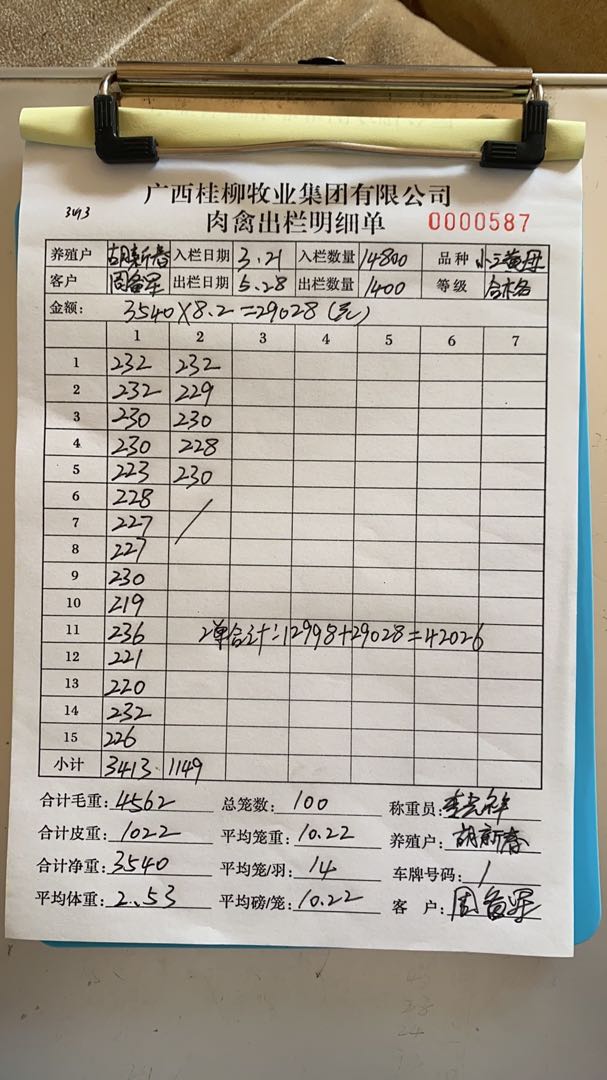 广西桂柳牧业集团有限公司
3413
肉禽出栏明细单 0000587
养殖户 胡新春 入栏日期 3.21 入栏数量 14800 品种 小三黄母
客户 出栏日期 5.28 出栏数量 1400 等级 合格
金额: 3540×8.2=29028(元)
1 2 3 4 5 6 7
1 232 232
2 232 229
3 230 230
4 230 228
5 223 230
6 228
7 227 /
8 227
9 230
10 219
11 236 2单合计:12998+29028=42026
12 221
13 220
14 232
15 226
小计 3413 1149
合计毛重: 4562 总笼数: 100 称重员:
合计皮重: 1022 平均笼重: 10.22 养殖户: 胡新春
合计净重: 3540 平均笼/羽: 14 车牌号码: 1
平均体重: 2.53 平均磅/笼: 10.22 客 户: